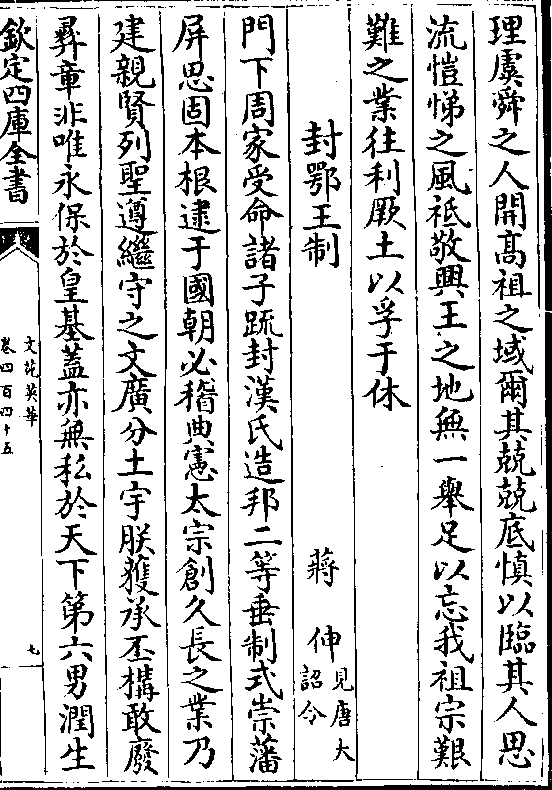 理虞舜之人開高祖之域爾其兢兢底慎以臨其人思
流愷悌之風祇敬興王之地無一舉足以忘我祖宗艱
難之業往利厥土以孚于休
封鄂王制 蔣伸 見唐大詔令
門下周家受命諸子疏封漢氏造邦二等垂制式崇藩
屏思固本根逮于國朝必稽典憲太宗創久長之業乃
建親賢列聖遵繼守之文廣分土宇朕獲承丕構敢廢
彞章非唯永保於皇基蓋亦無私於天下第六男潤生
欽定四庫全書
文苑英華
卷四百四十五
七